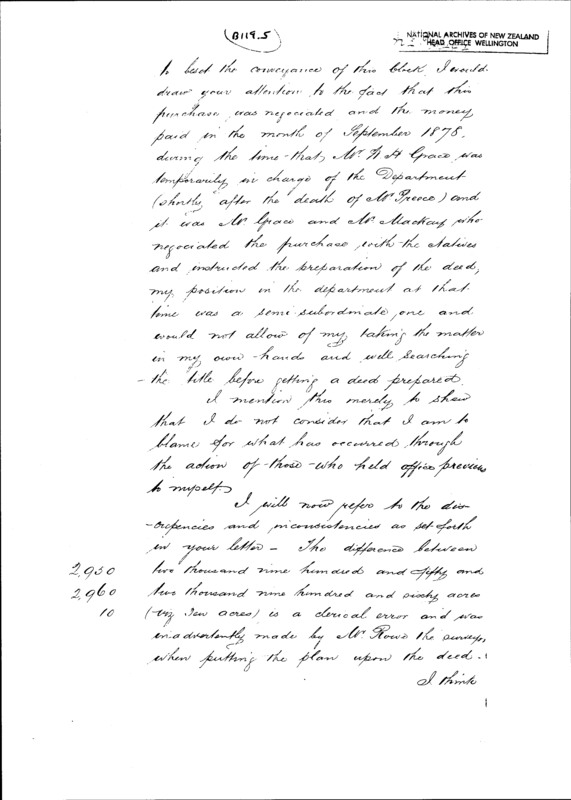 (B119.5)
NATIONAL ARCHIVES OF NEW ZEALAND
HEAD OFFICE WELLINGTON
to best the conveyance of this block. I would
draw your attention to the fact that this
purchase was negociated and the money
paid in the month of September 1878.
during the time that Mr. W H Grace was
temporarily in charge of the Department
(shortly after the death of Mr Preece) and
it was Mr. Grace and Mr. Mackay who
negociated the purchase with the Natives
and instructed the preparation of the deed,
my position in the department at that
time was a semi-subordinate one and
would not allow of my taking the matter
in my own hands and well searching
- the title before getting a deed prepared.
I mention this merely to shew
that I do not consider that I am to
blame for what has occurred through
the action of those who held office previous
to myself
I will now refer to the dis-
-crepencies and inconsistencies as set forth
in your letter - The difference between
2,950 two thousand nine hundred and fifty and
2,960 two thousand nine hundred and sixty acres
10 (viz Ten acres) is a clerical error and was
inadvertently made by Mr Rowe the surveyor
when putting the plan upon the deed.
I think